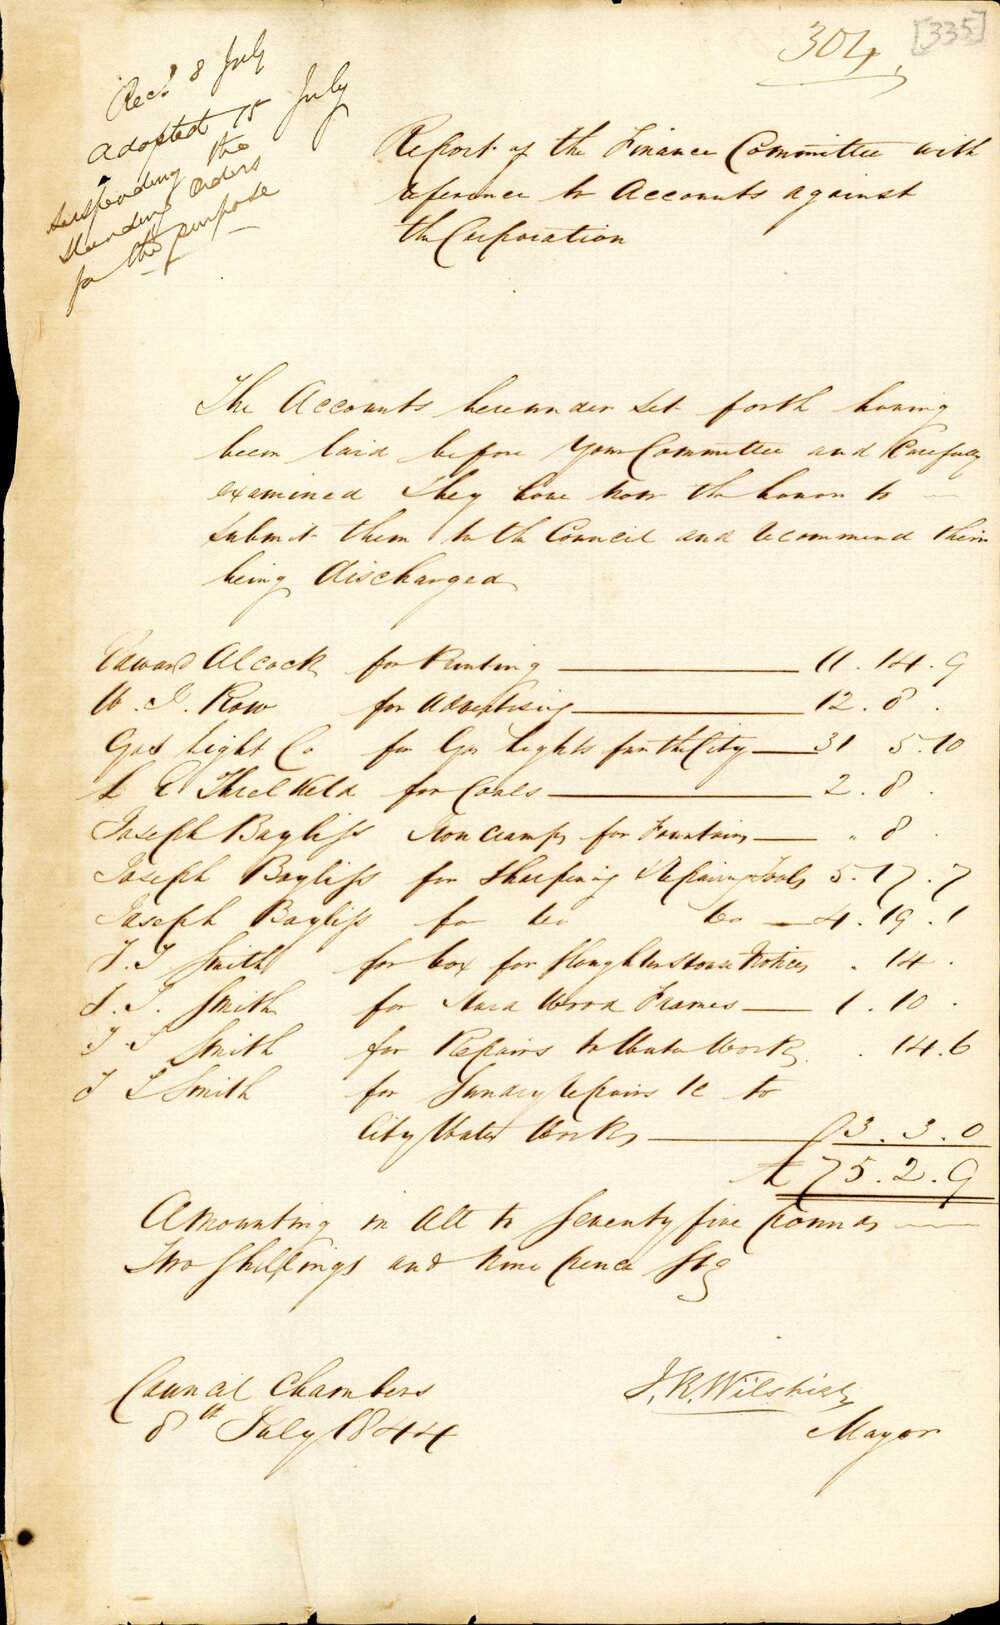 304,
[335]
Rec.d 8 July
adopted 15 July
suspending the
standing orders
for the purpose
Report of the Finance Committee with
reference to Accounts against
the Corporation
The Accounts hereunder set forth having
been laid before your Committee and Carefully
examined They have now the honor to
submit them to the Council and recommend their
being discharged
Edward Alcock for Printing 11. 14. 9
W. J. Row for advertising 12. 8 .
Gas Light Co for Gas Lights for the City 31 5. 10
L E Threlkeld for Coals 2. 8 .
Joseph Bayliss Iron clamps for Fountains . 8 .
Joseph Bayliss for Sharpening & Repairing Tools 5. 17. 7
Joseph Bayliss for do do 4. 19. 1
T. T Smith for box for Slaughter House Notices . 14 .
T. T. Smith for Hard Wood Frames 1. 10 .
T T Smith for Repairs to Water Works . . 14. 6
T T Smith for Sundry repairs &c to
City Water Works 3. 3. 0
£ 75. 2. 9
Amounting in all to Seventy five pounds
Two Shillings and nine pence Stg
Council Chambers
8th July 1844
J. R. Wilshire
Mayor